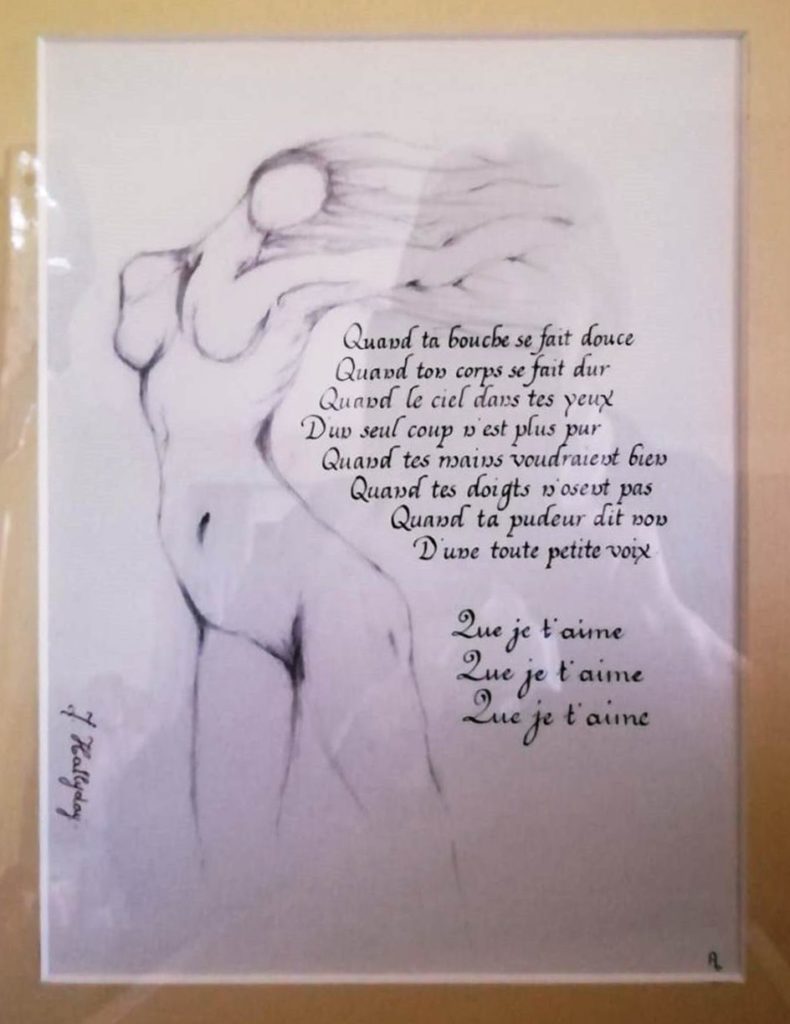 Quand ta bouche se fait douce
Quand ton corps se fait dur
Quand le ciel dans tes yeux
D'un seul coup n'est plus pur
Quand tes mains voudraient bien
Quand tes doigts n'osent pas
Quand ta pudeur dit non
D'une toute petite voix
Que je t'aime
Que je t'aime
Que je t'aime
J Hallyday